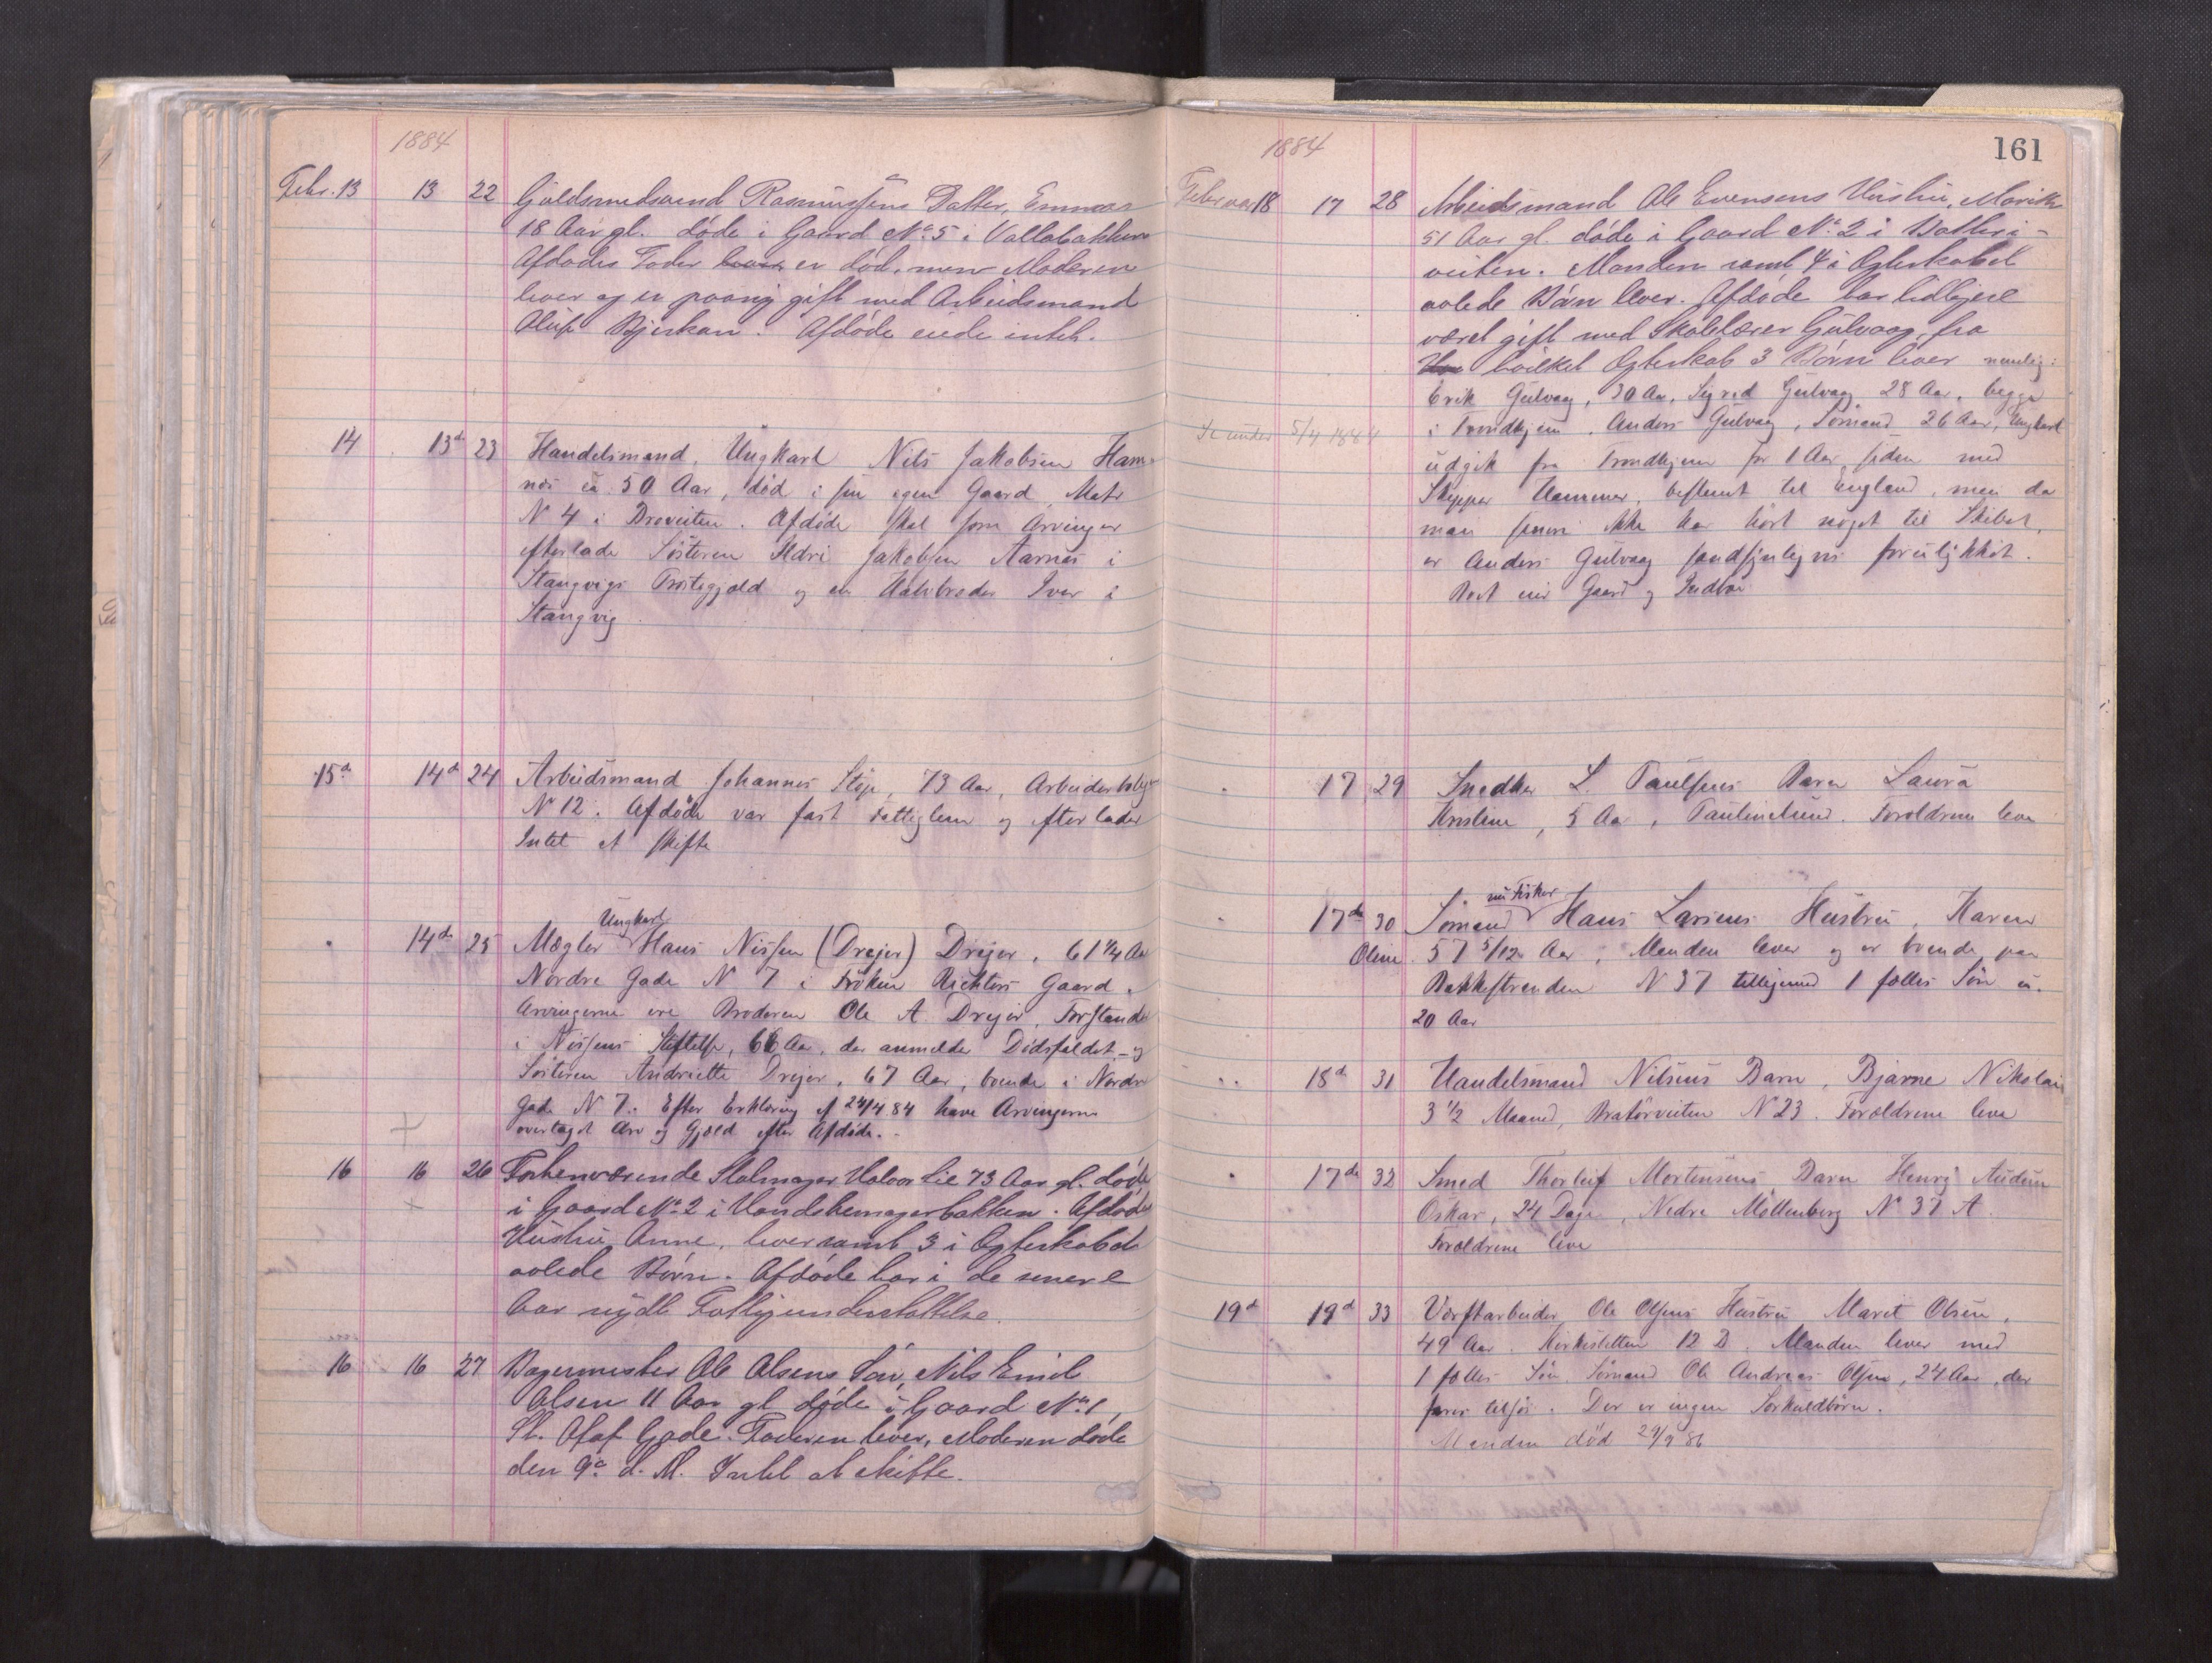 1884
Febr. 13 13 22 Guldsmedsvend Rasmussens Datter, Emma
18 Aar gl. døde i Gaard No. 5 i Vollabakken
Afdødes Fader er død, men Moderen
lever og er paany gift med Arbeidsmand
Oluf Bjerkan. Afdøde eiede intet.
14 13d 23 Handelsmand, Ungkarl Nils Jakobsen Ham-
nes ca. 50 Aar, død i sin egen Gaard, Matr
N 4 i Dreveiten. Afdøde skal som Arvinger
efterlade Søsteren Ildri Jakobsen Aarnes i
Stangvigs Præstegjæld og en Halvbroder Iver i
Stangvig
15d 14d 24 Arbeidsmand Johannes Støp, 73 Aar, Arbeiderbolig
N 12. Afdøde var fast Fattiglem og efterlader
Intet at skifte
14de 25 Mægler Ungkarl Hans Nissen (Drejer) Drejer, 61 1/4 Aar
Nordre Gade N 7 i Frøken Richters Gaard.
Arvingerne ere Broderen Ole A. Drejer, Forstander
i Nissens Stiftelse, 66 Aar, der anmelder Dødsfaldet, og
Søsteren Andriette Drejer, 67 Aar, boende i Nordre
Gade N 7. Efter Erklæring af 24/4 84 have Arvingerne
overtaget Arv og Gjæld efter Afdøde.
16 16 26 Forhenværende Stolmager Haloor Lie 73 Aar gl. døde
i Gaard No. 2 i Vandstemagerbakken. Afdødes
Hustru Anne, lever samt 3 i Ægteskabet
avlede Børn. Afdøde har i de senere
Aar nydt Fattigunderstøttelse.
16 16 27 Bagermester Ole Olsens Søn, Nils Emil
Olsen 11 Aar gl døde i Gaard No. 1,
St. Olaf Gade. Faderen lever, Moderen døde
den 9de d. M. Intet at skifte.
1884
161
Februar 18 17 28 Arbeidsmand Ole Evensens Hustru, Marit
51 Aar gl. døde i Gaard No. 2 i Batteri-
veiten. Manden samt 4 i Ægteskabet
avlede Børn lever. Afdøde har tidligere
været gift med Skolelærer Gulvaag, fra
hvilket Ægteskab 3 Børn lever nemlig:
Erik Gulvaag, 30 Aar, Sigrid Gulvaag 28 Aar, begge
Se under 5/4 1884 i Trondhjem. Anders Gulvaag, Sømand 26 Aar, Ungkarl
udgik fra Trondhjem for 1 Aar siden med
Skipper Hammer, bestemt til England, men da
man senere ikke har hørt noget til Skibet,
er Anders Gulvaag sandsynligvis forulykket.
Boet eier Gaard og Indbo
17 29 Snedker L. Paulsens Barn Laura
Kristine, 5 Aar, Paulinelund. Forældrene leve
17de 30 Sømand nu Fisker Hans Larsens Hustru, Karen
Oline 57 5/12 Aar, Manden lever og er boende paa
Bakkestranden N 37 tilligemed 1 fælles Søn ca.
20 Aar
18d 31 Handelsmand Nilsens Barn, Bjarne Nikolai
3 1/2 Maaned, Bratørveiten N 23. Forældrene leve
17de 32 Smed Thorleif Mortensens Barn Henry Audun
Oskar, 24 Dage, Nedre Møllenberg N 37 A.
Forældrene leve
19d 19d 33 Værftarbeider Ole Olsens Hustru Marit Olsen,
49 Aar. Kirkesletten 12 B. Manden lever med
1 fælles Søn Sømand Ole Andreas Olsen, 24 Aar, der
farer tilsjøs. Der er ingen Særkuldbørn.
Manden død 29/9 86